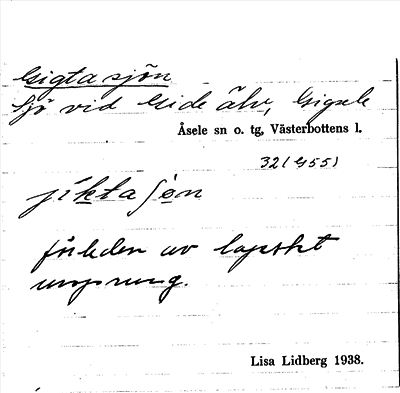 Gigtasjön
Sjö vid Gide älv, Gigsele
Åsele sn o. tg, Västerbottens l.
32 ( 455 )
jiktaʃøn
förleden av lapskt
ursprung.
Lisa Lidberg 1938.